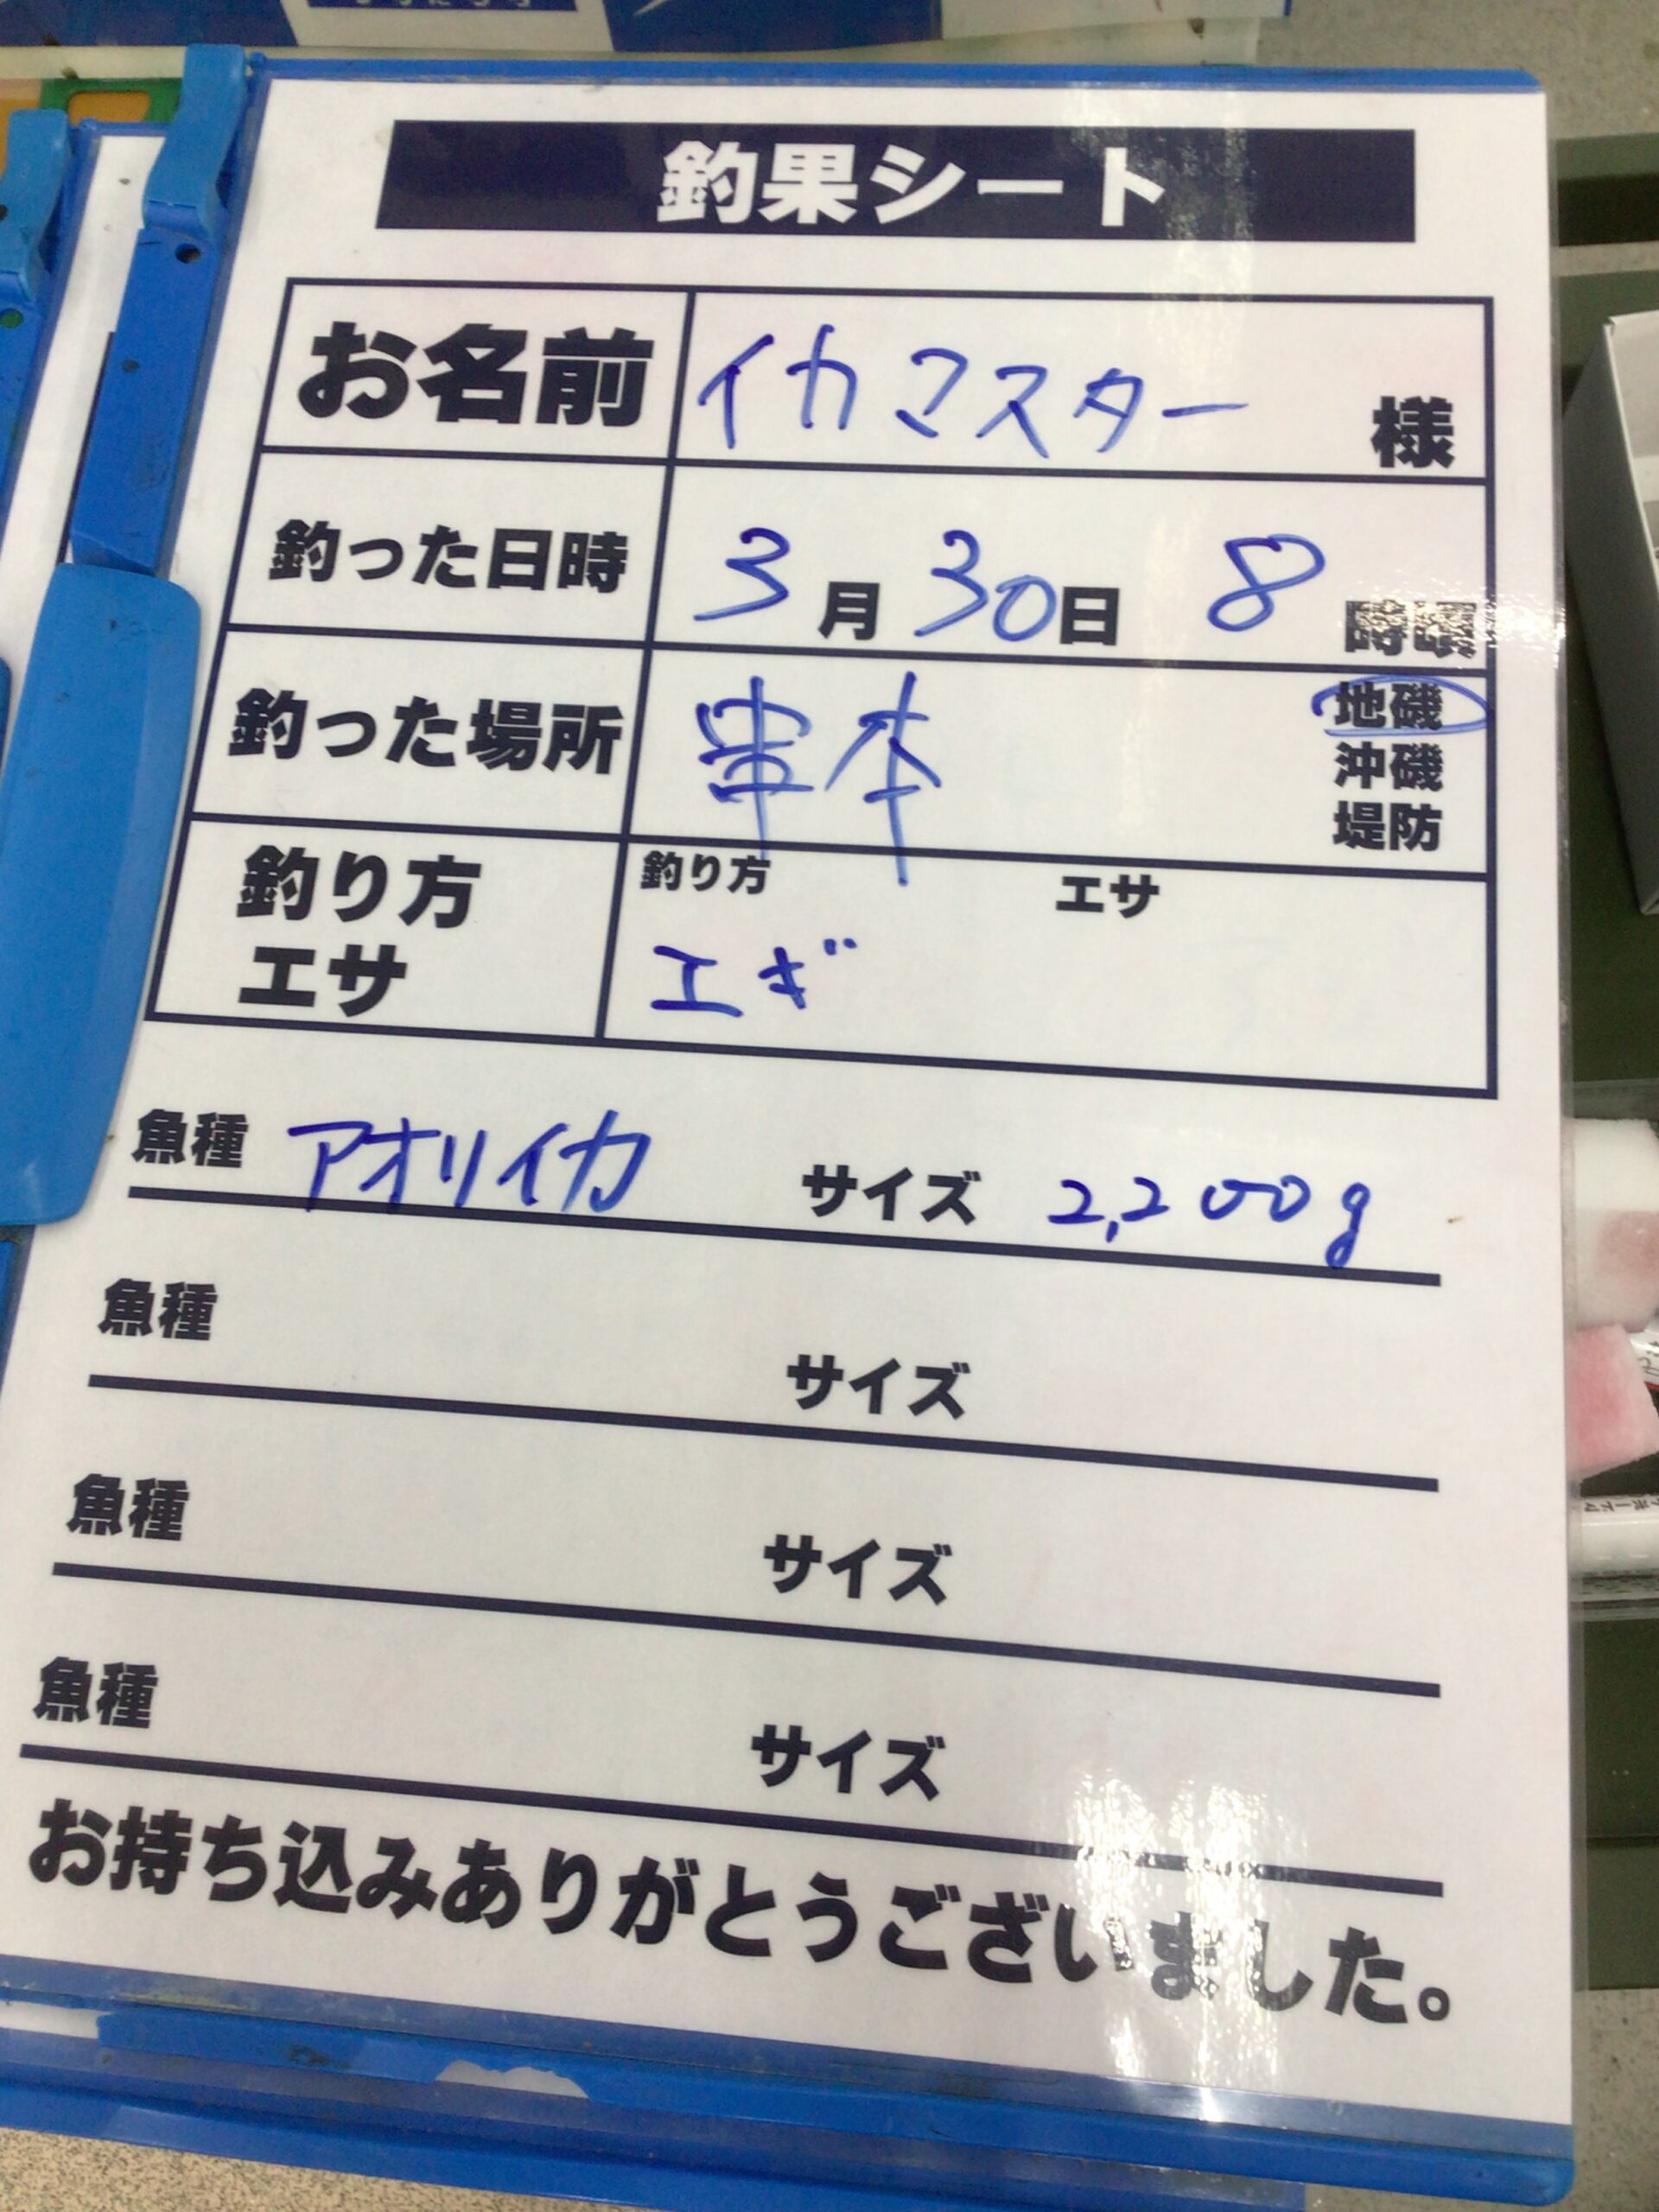 釣果シート
お名前 イカマスター 様
釣った日時 3月30日 8時頃
釣った場所 串本 地磯
沖磯
堤防
釣り方 エサ
釣り方 エサ
エギ
魚種 アオリイカ サイズ 2,200g
魚種 サイズ
魚種 サイズ
魚種 サイズ
お持ち込みありがとうございました。